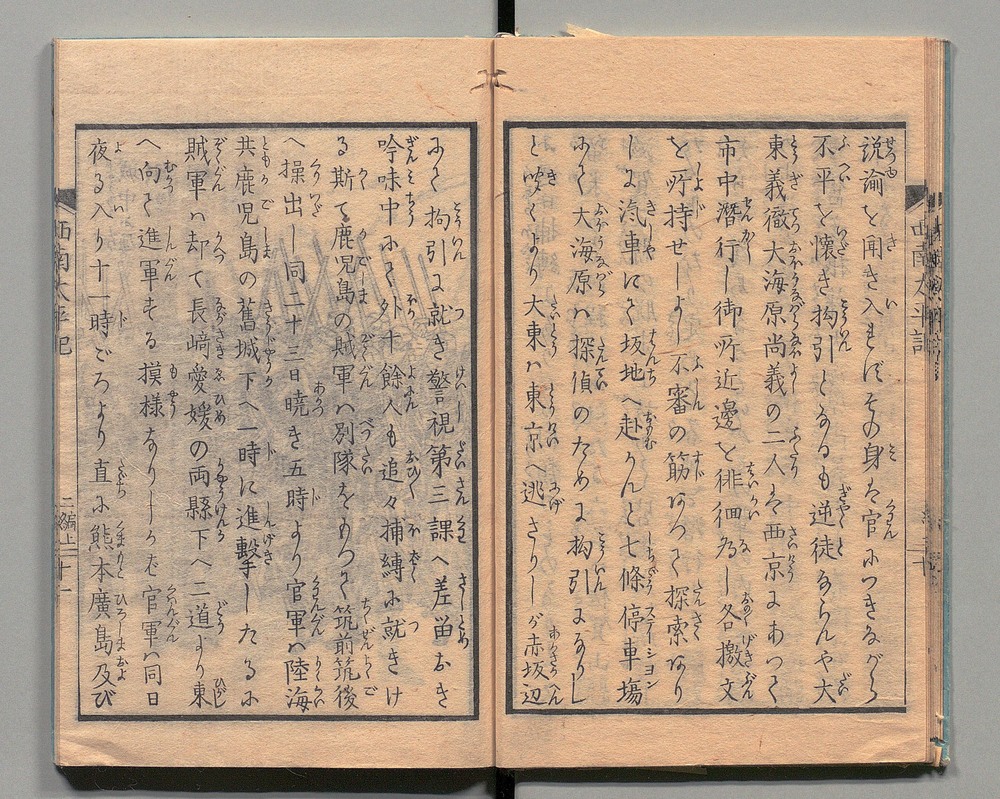 説諭を聞き入ませずその身は官につきながら
不平を懐き拘引となるも逆徒ならんや大
東義徹大海原尚義の二人は西京にあつて
市中潜行し御所近邊を徘徊為し各檄文
を所持せしよし不審の筋あつて探索なり
しに汽車にて坂地へ赴かんと七條停車塲
にて大海原は探偵のために拘引になりし
と咲くより大東は東京へ逃さりしが赤坂辺
にて拘引に就き警視第三課へ差畄おき
吟味中にて外十餘人も追々捕縛に就きけ
る斯て鹿児島の賊軍は別隊をもつて筑前筑後
へ操出し同二十三日暁き五時より官軍は陸海
共鹿児島の舊城下へ一時に進擊したるに
賊軍は却て長﨑愛媛の両縣下へ二道より東
へ向て進軍する摸様なりしかば官軍は同日
夜る入り十一時ごろより直に熊本廣島及び
西南太平記
二編上
十一